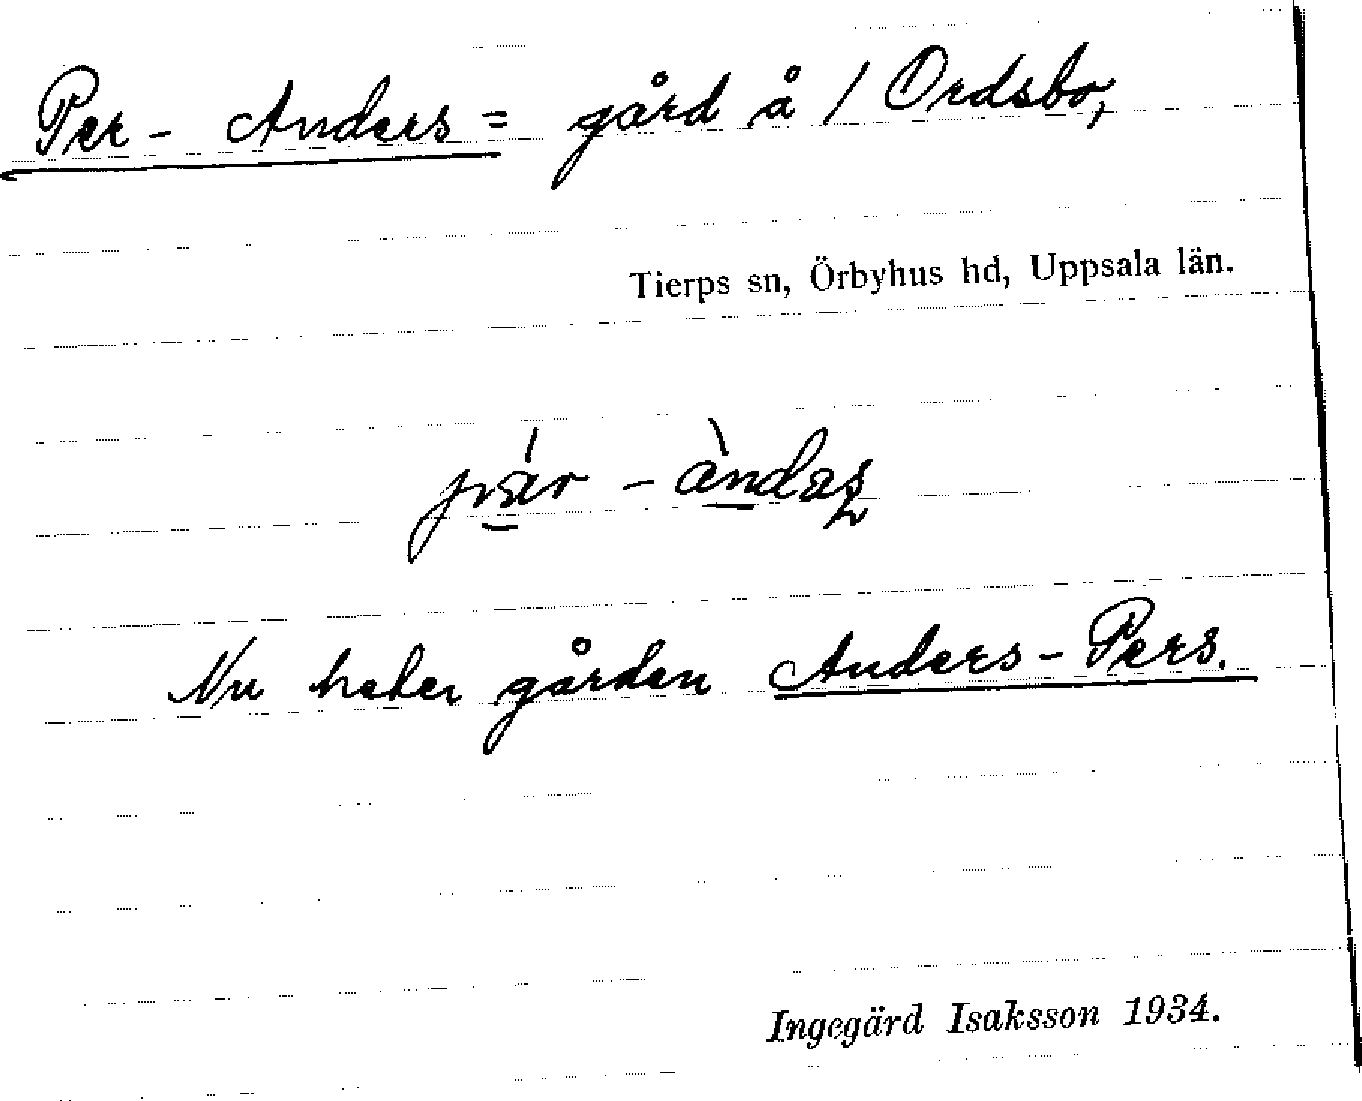 Per - Anders = gård å / Ordsbo,
Tierps sn, Örbyhus hd, Uppsala län.
pär - àndas
Nu heter gården Anders - Pers.
Ingegärd Isaksson 1934.